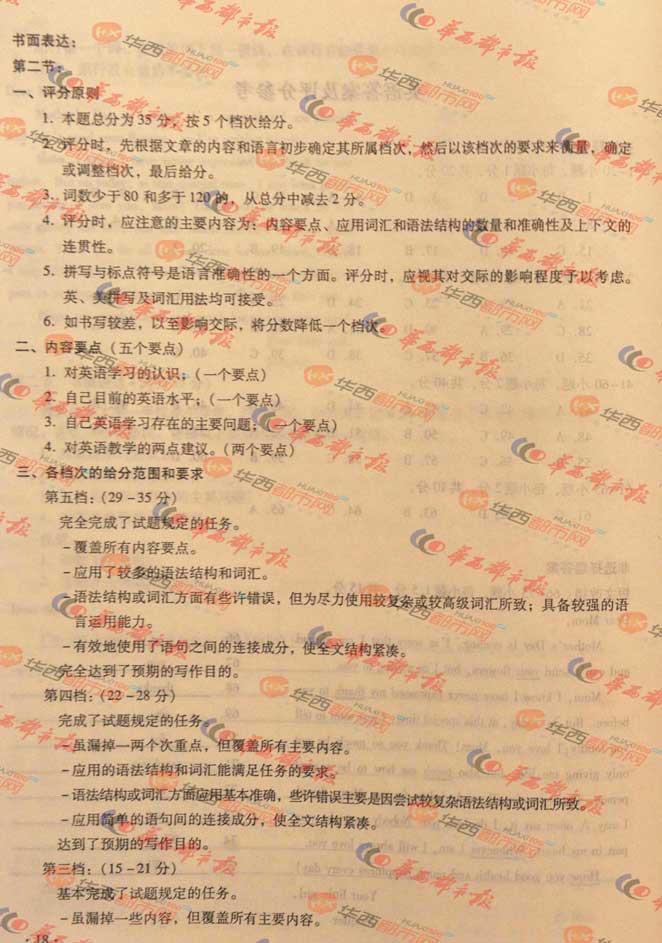 书面表达：
第二节：
一、评分原则
1. 本题总分为 35 分，按 5 个档次给分。
2. 评分时，先根据文章的内容和语言初步确定其所属档次，然后以该档次的要求来衡量，确定
或调整档次，最后给分。
3. 词数少于 80 和多于 120 的，从总分中减去 2 分。
4. 评分时，应注意的主要内容为：内容要点、应用词汇和语法结构的数量和准确性及上下文的
连贯性。
5. 拼写与标点符号是语言准确性的一个方面。评分时，应视其对交际的影响程度予以考虑。
英、美拼写及词汇用法均可接受。
6. 如书写较差，以至影响交际，将分数降低一个档次。
二、内容要点（五个要点）
1. 对英语学习的认识；（一个要点）
2. 自己目前的英语水平；（一个要点）
3. 自己英语学习存在的主要问题；（一个要点）
4. 对英语教学的两点建议。（两个要点）
三、各档次的给分范围和要求
第五档：（29－35 分）
完全完成了试题规定的任务。
－覆盖所有内容要点。
－应用了较多的语法结构和词汇。
－语法结构或词汇方面有些许错误，但为尽力使用较复杂或较高级词汇所致；具备较强的语
言运用能力。
－有效地使用了语句之间的连接成分，使全文结构紧凑。
完全达到了预期的写作目的。
第四档：（22－28 分）
完成了试题规定的任务。
－虽漏掉一两个次重点，但覆盖所有主要内容。
－应用的语法结构和词汇能满足任务的要求。
－语法结构或词汇方面应用基本准确，些许错误主要是因尝试较复杂语法结构或词汇所致。
－应用简单的语句间的连接成分，使全文结构紧凑。
达到了预期的写作目的。
第三档：（15－21 分）
基本完成了试题规定的任务。
－虽漏掉一些内容，但覆盖所有主要内容。
·18·
华西都市报
华西都市网
HUAXI100